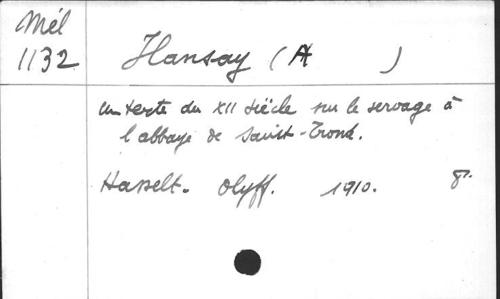 Mél
1132
Hansay (A )
Un texte du XII siècle sur le servage à
l'abbaye de Saint-Trond.
Hasselt. Olyff. 1910. 8°.